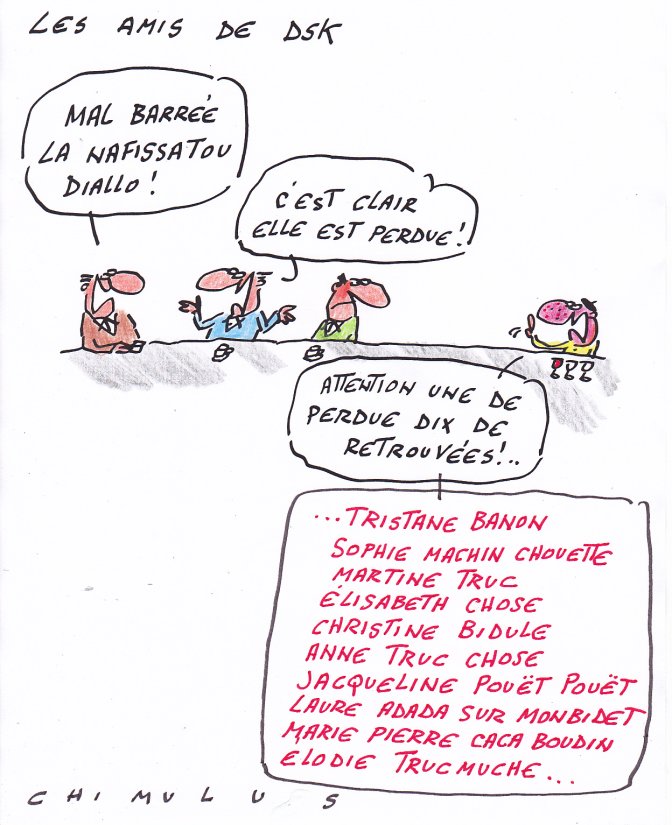 LES AMIS DE DSK
MAL BARRÉE
LA NAFISSATOU
DIALLO !
C'EST CLAIR
ELLE EST PERDUE !
ATTENTION UNE DE
PERDUE DIX DE
RETROUVÉES !..
...TRISTANE BANON
SOPHIE MACHIN CHOUETTE
MARTINE TRUC
ÉLISABETH CHOSE
CHRISTINE BIDULE
ANNE TRUC CHOSE
JACQUELINE POUËT POUËT
LAURE ADADA SUR MONBIDET
MARIE PIERRE CACA BOUDIN
ELODIE TRUCMUCHE...
CHIMULUS